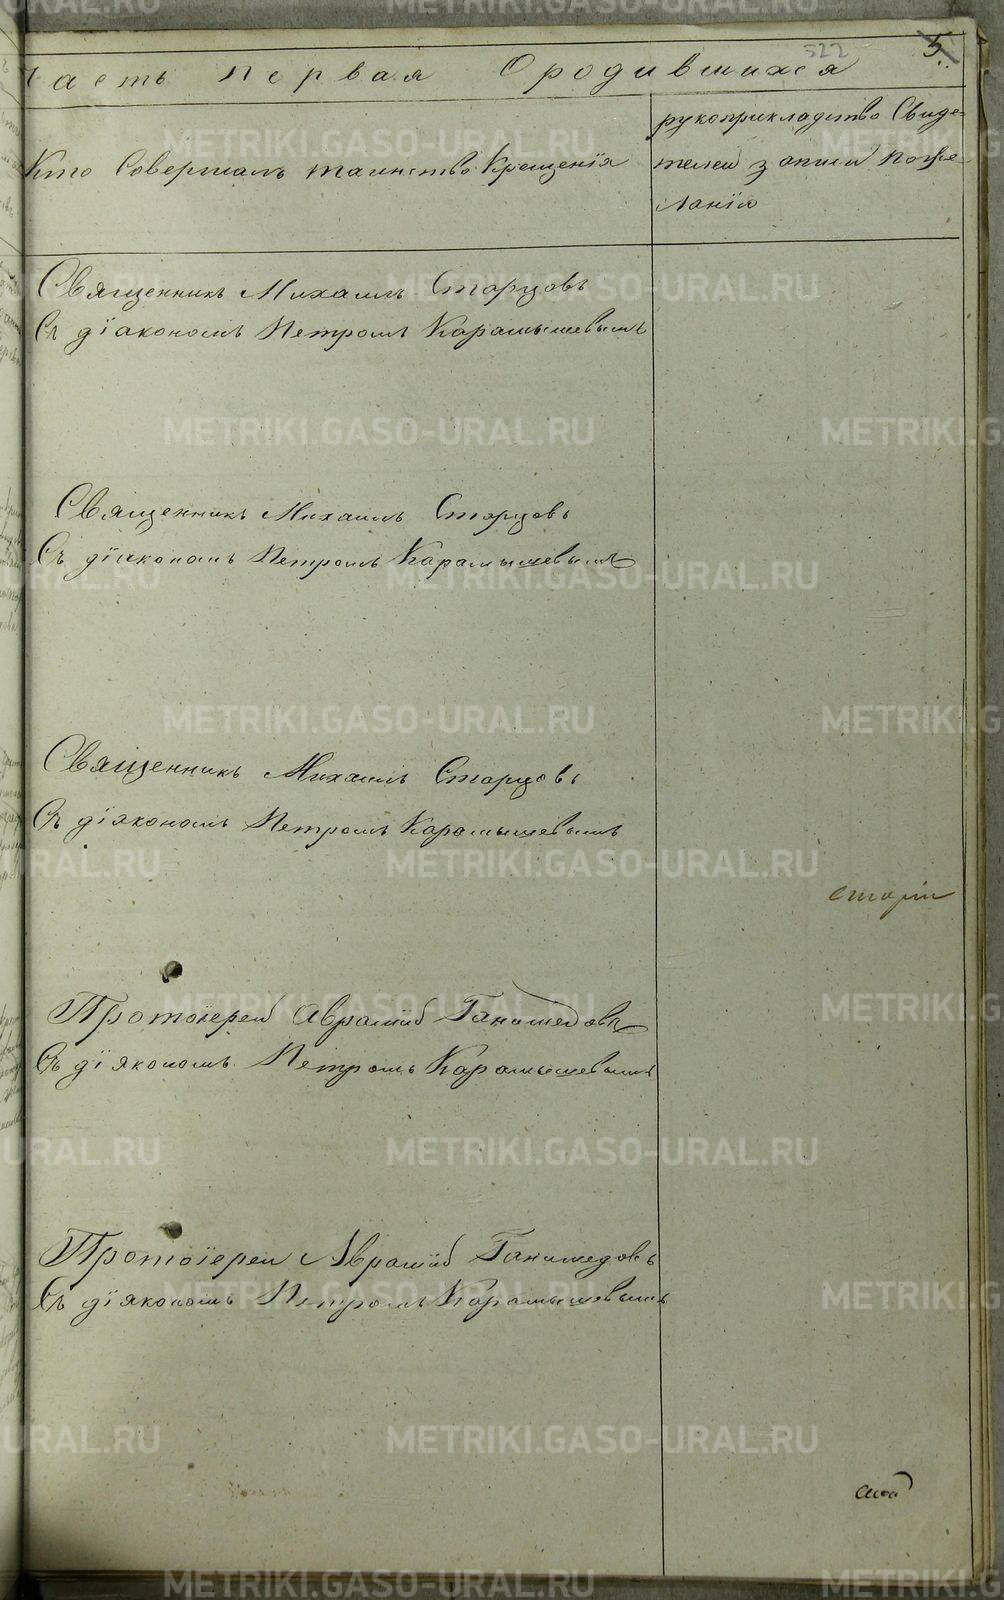 522
5.
Часть первая О родившихся
Кто Совершалъ таинство Крещенія
рукоприкладство Свиде-
телей записи по же-
ланію
Священникъ Михаилъ Старцовъ
Съ діакономъ Петромъ Карамышевымъ
Священникъ Михаилъ Старцовъ
Съ діякономъ Петромъ Карамышевымъ
Священникъ Михаилъ Старцовъ
Съ діякономъ Петромъ Карамышевымъ
Протоіерей Аврамій Ганимедовъ
Съ діякономъ Петромъ Карамышевымъ
Протоіерей Аврамій Ганимедовъ
Съ діякономъ Петромъ Карамышевымъ
METRIKI.GASO-URAL.RU